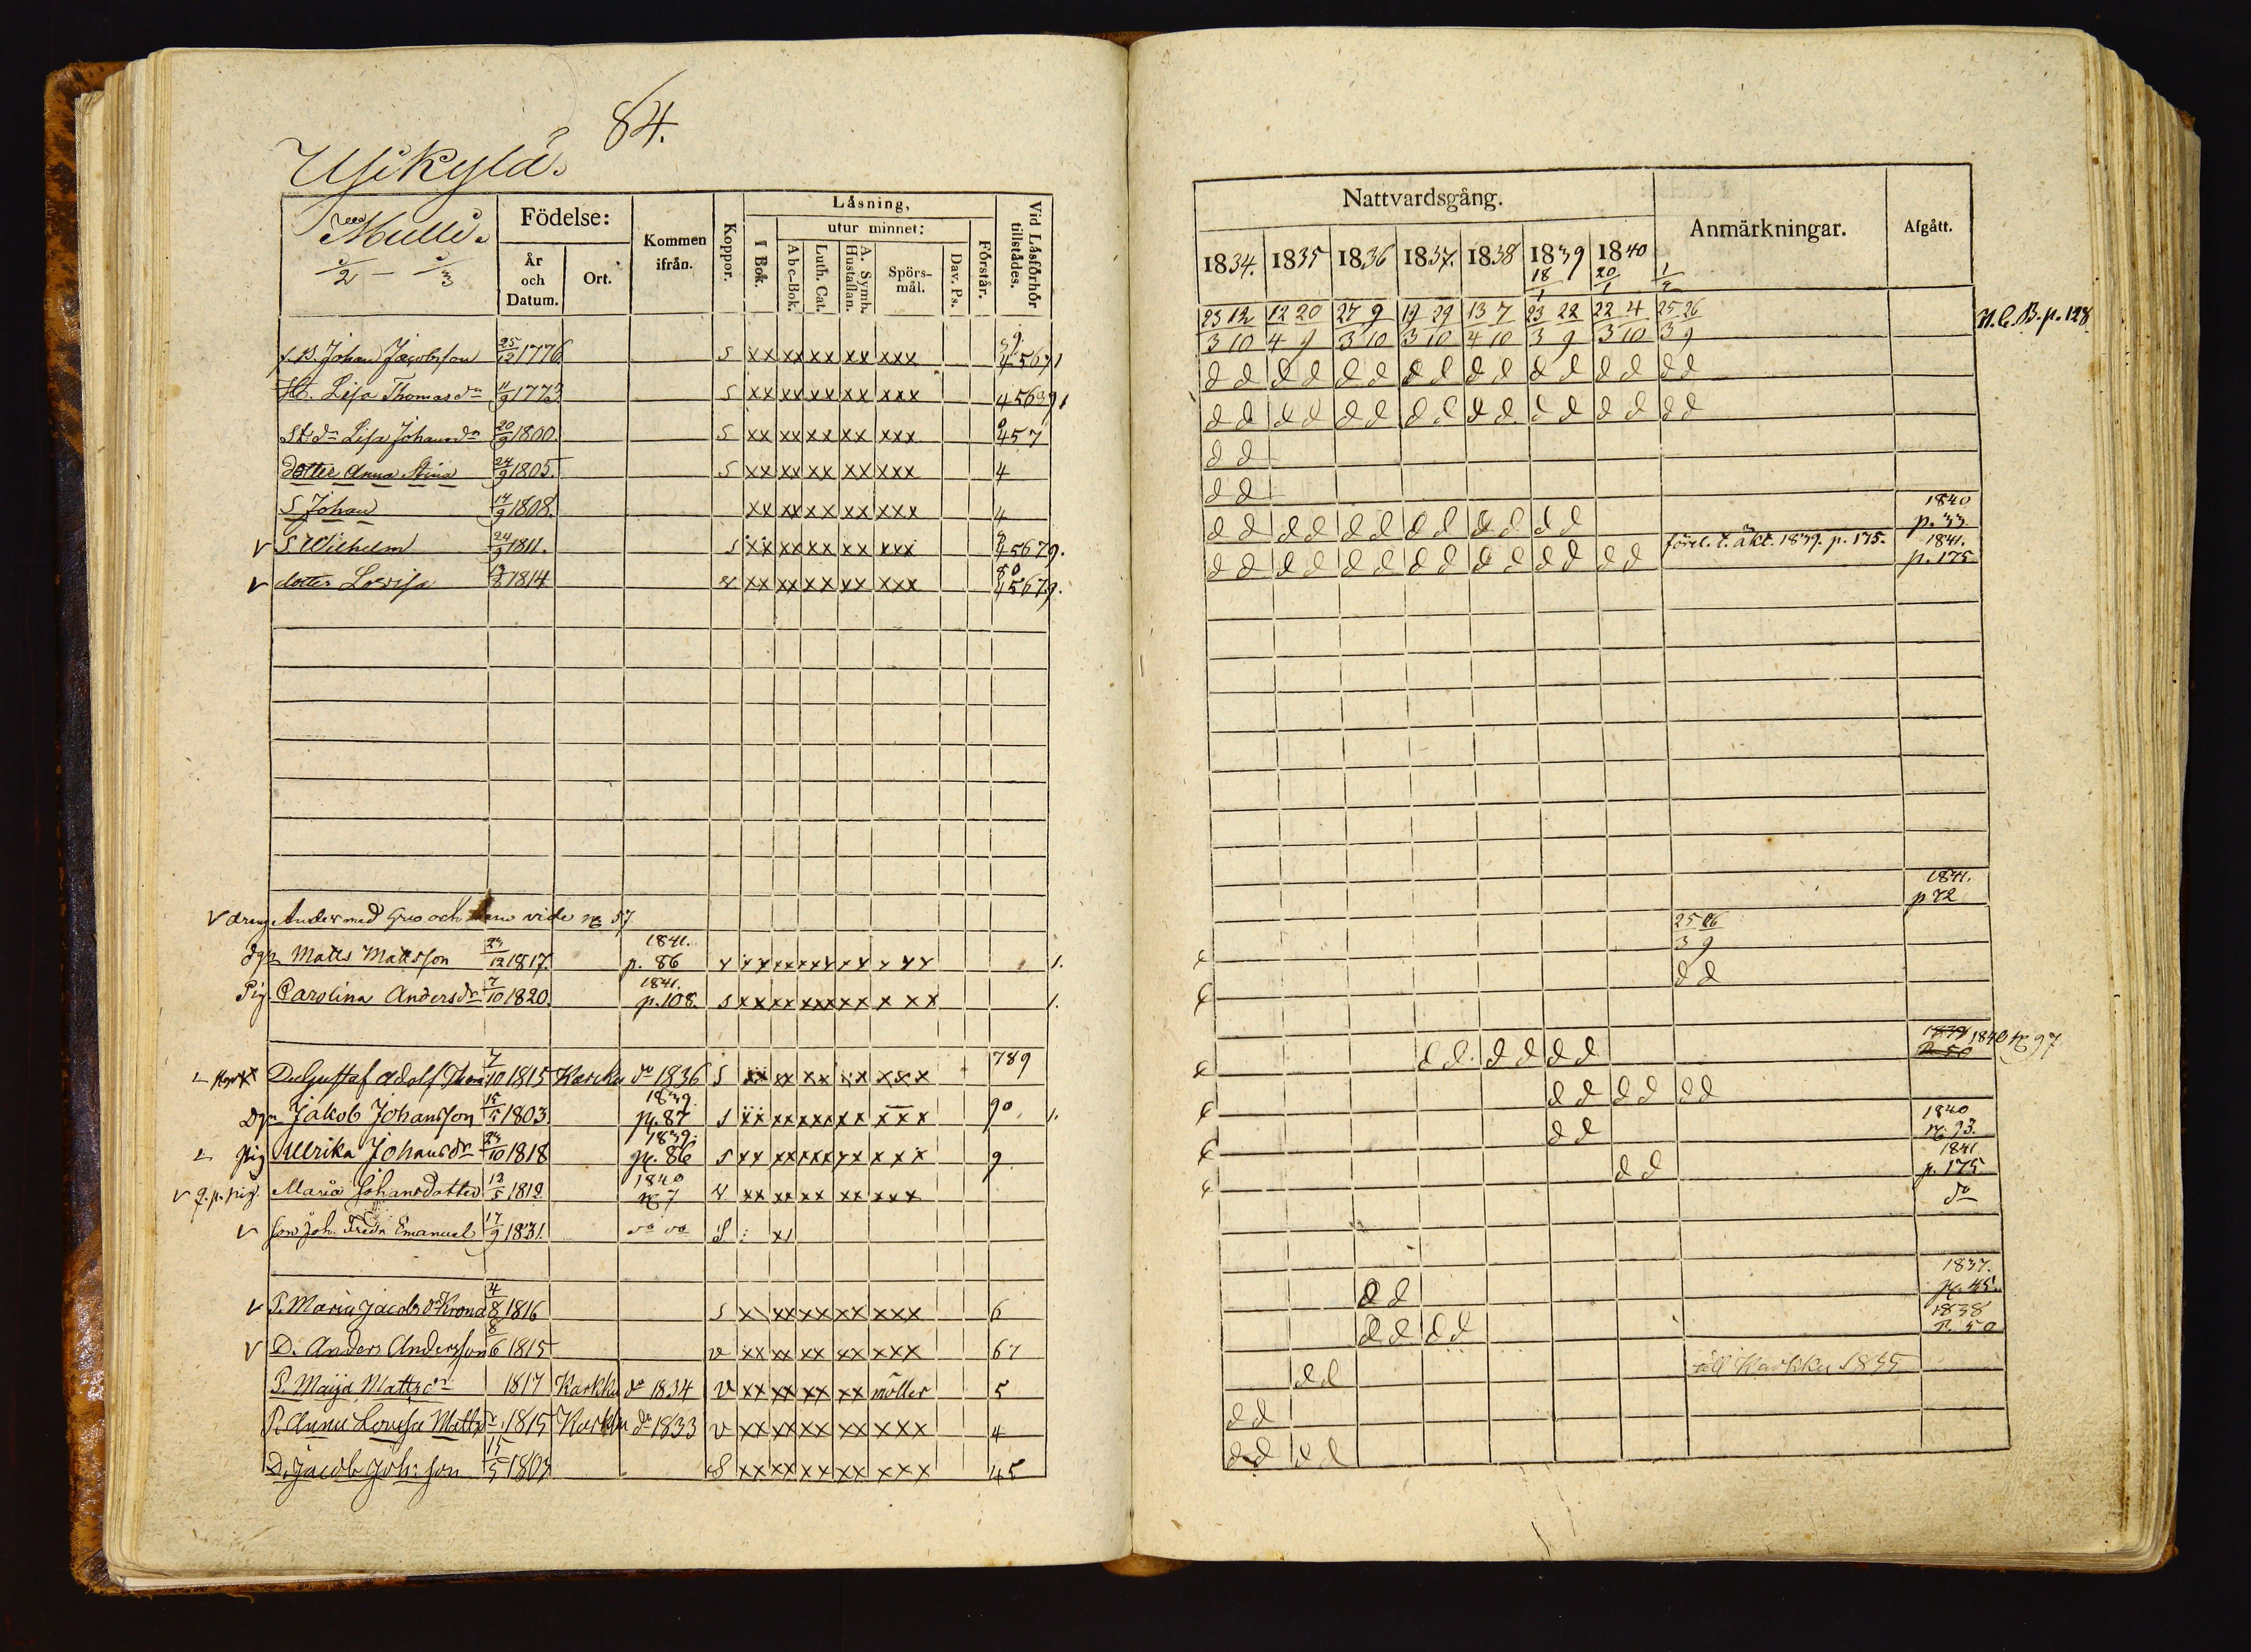 84.
Mulli.
Födelse:
År och Datum.
Ort.
Kommen ifrån.
Koppor.
Läsning,
I Bok.
utur minnet:
Abc-Bok.
Luth. Cat.
A. Symb. Hustaflan.
Spörs-mål.
Dav. Ps.
Förstår.
Vid Läsförhör tillstädes.
Johan Jacobsson 25/12 1776 S xx xx xx xx xxx
Lisa Thomas dr 11/9 1773 S xx xx xx xx xxx
dr Lisa Johans dr 20/9 1800 S xx xx xx xx xxx 457
dotter Anna Stina 24/9 1805. S xx xx xx xx xxx 4
S Johan 14/9 1808. xx xx xx xx xxx 4
v S Wilhelm 24/9 1811. S xx xx xx xx xxx 45679.
v dotter Lovisa 1814 xx xx xx xx xxx 45679.
v dreng Anders med och vide pg 57
Matts Mattsson 23/12 1817. 1841. p. 86 1.
Pig. Carolina Andersdr 7/10 1820. 1841. p.108. S xx xx xx xx x xx 1.
Gustaf Adolf 7/10 1815 Karkku do 1836 S xx xx xx xx xxx 789
Jakob Johansson 15/5 1803. 1839. pg. 87 S xx xx xx xx xxx 90. 1.
Pig Ulrika Johansdr 23/10 1818 1839. pg. 86 S xx xx xx xx xxx 9
v Maria Johansdotter 12/5 1812 1840 pg 7 xx xx xx xx xxx
v son Joh. Fredr. Emanuel 17/9 1831. do do S x
v P. Maria Jacobs dr Krona 4/8 1816 S x xx xx xx xxx 6
v D. Anders Andersson 8/6 1815 v xx xx xx xx xxx 67
P. Maija Matts dr 1817 Karkku do 1834 v xx xx xx xx möller 5
P. Anna Lovisa Matts dr 1815 Karkku do 1833 v xx xx xx xx xxx 4
D. Jacob Joh: son 15/5 1803 S xx xx xx xx xxx 45
Nattvardsgång.
Anmärkningar.
Afgått.
1834. 1835 1836 1837. 1838 1839 1840
18/1 20/1
23 12 12 20 27 9 19 29 13 7 23 22 22 4 25 26
3 10 4 9 3 10 3 10 4 10 3 9 3 10 3 9
N.C.B. p. 128
d d d d d d d d d d d d d d d d
d d d d d d d d d d d d d d d d
d d
d d
d d d d d d d d d d d d 1840 p. 33
d d d d d d d d d d d d d d 1839. p. 175. 1841. p. 175
1841. p 72
25 26
3 9
d d
d d d d d d 1839 P. 50 1840 pg 97
d d d d d d
d d 1840 pg. 93.
d d 1841 p. 175
do
d d 1837. pg. 45.
d d d d 1838 P. 50
d d till Karkku 1835
d d
d d d d